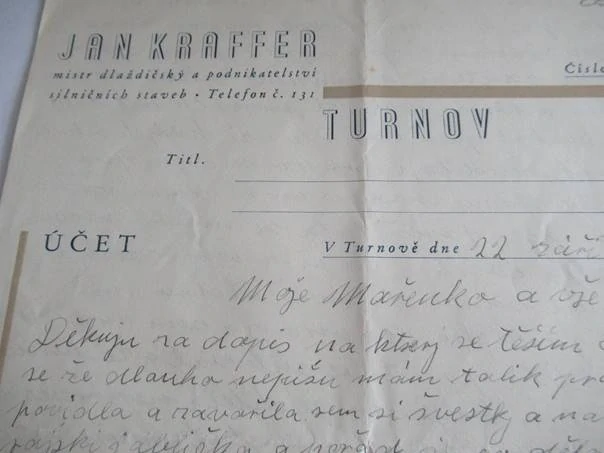 JAN KRAFFER
mistr dlaždičský a podnikatelství
silničních staveb • Telefon č. 131
Číslo
TURNOV
Titl.
ÚČET
V Turnově dne 22 září
Moje Mařenko a vše
Děkuju za dopis na kterj se těším
se že dlouho nepíšu mám tolik prá
povidla a zavařila sem si švestky a na
rajski jablíčka a pořád